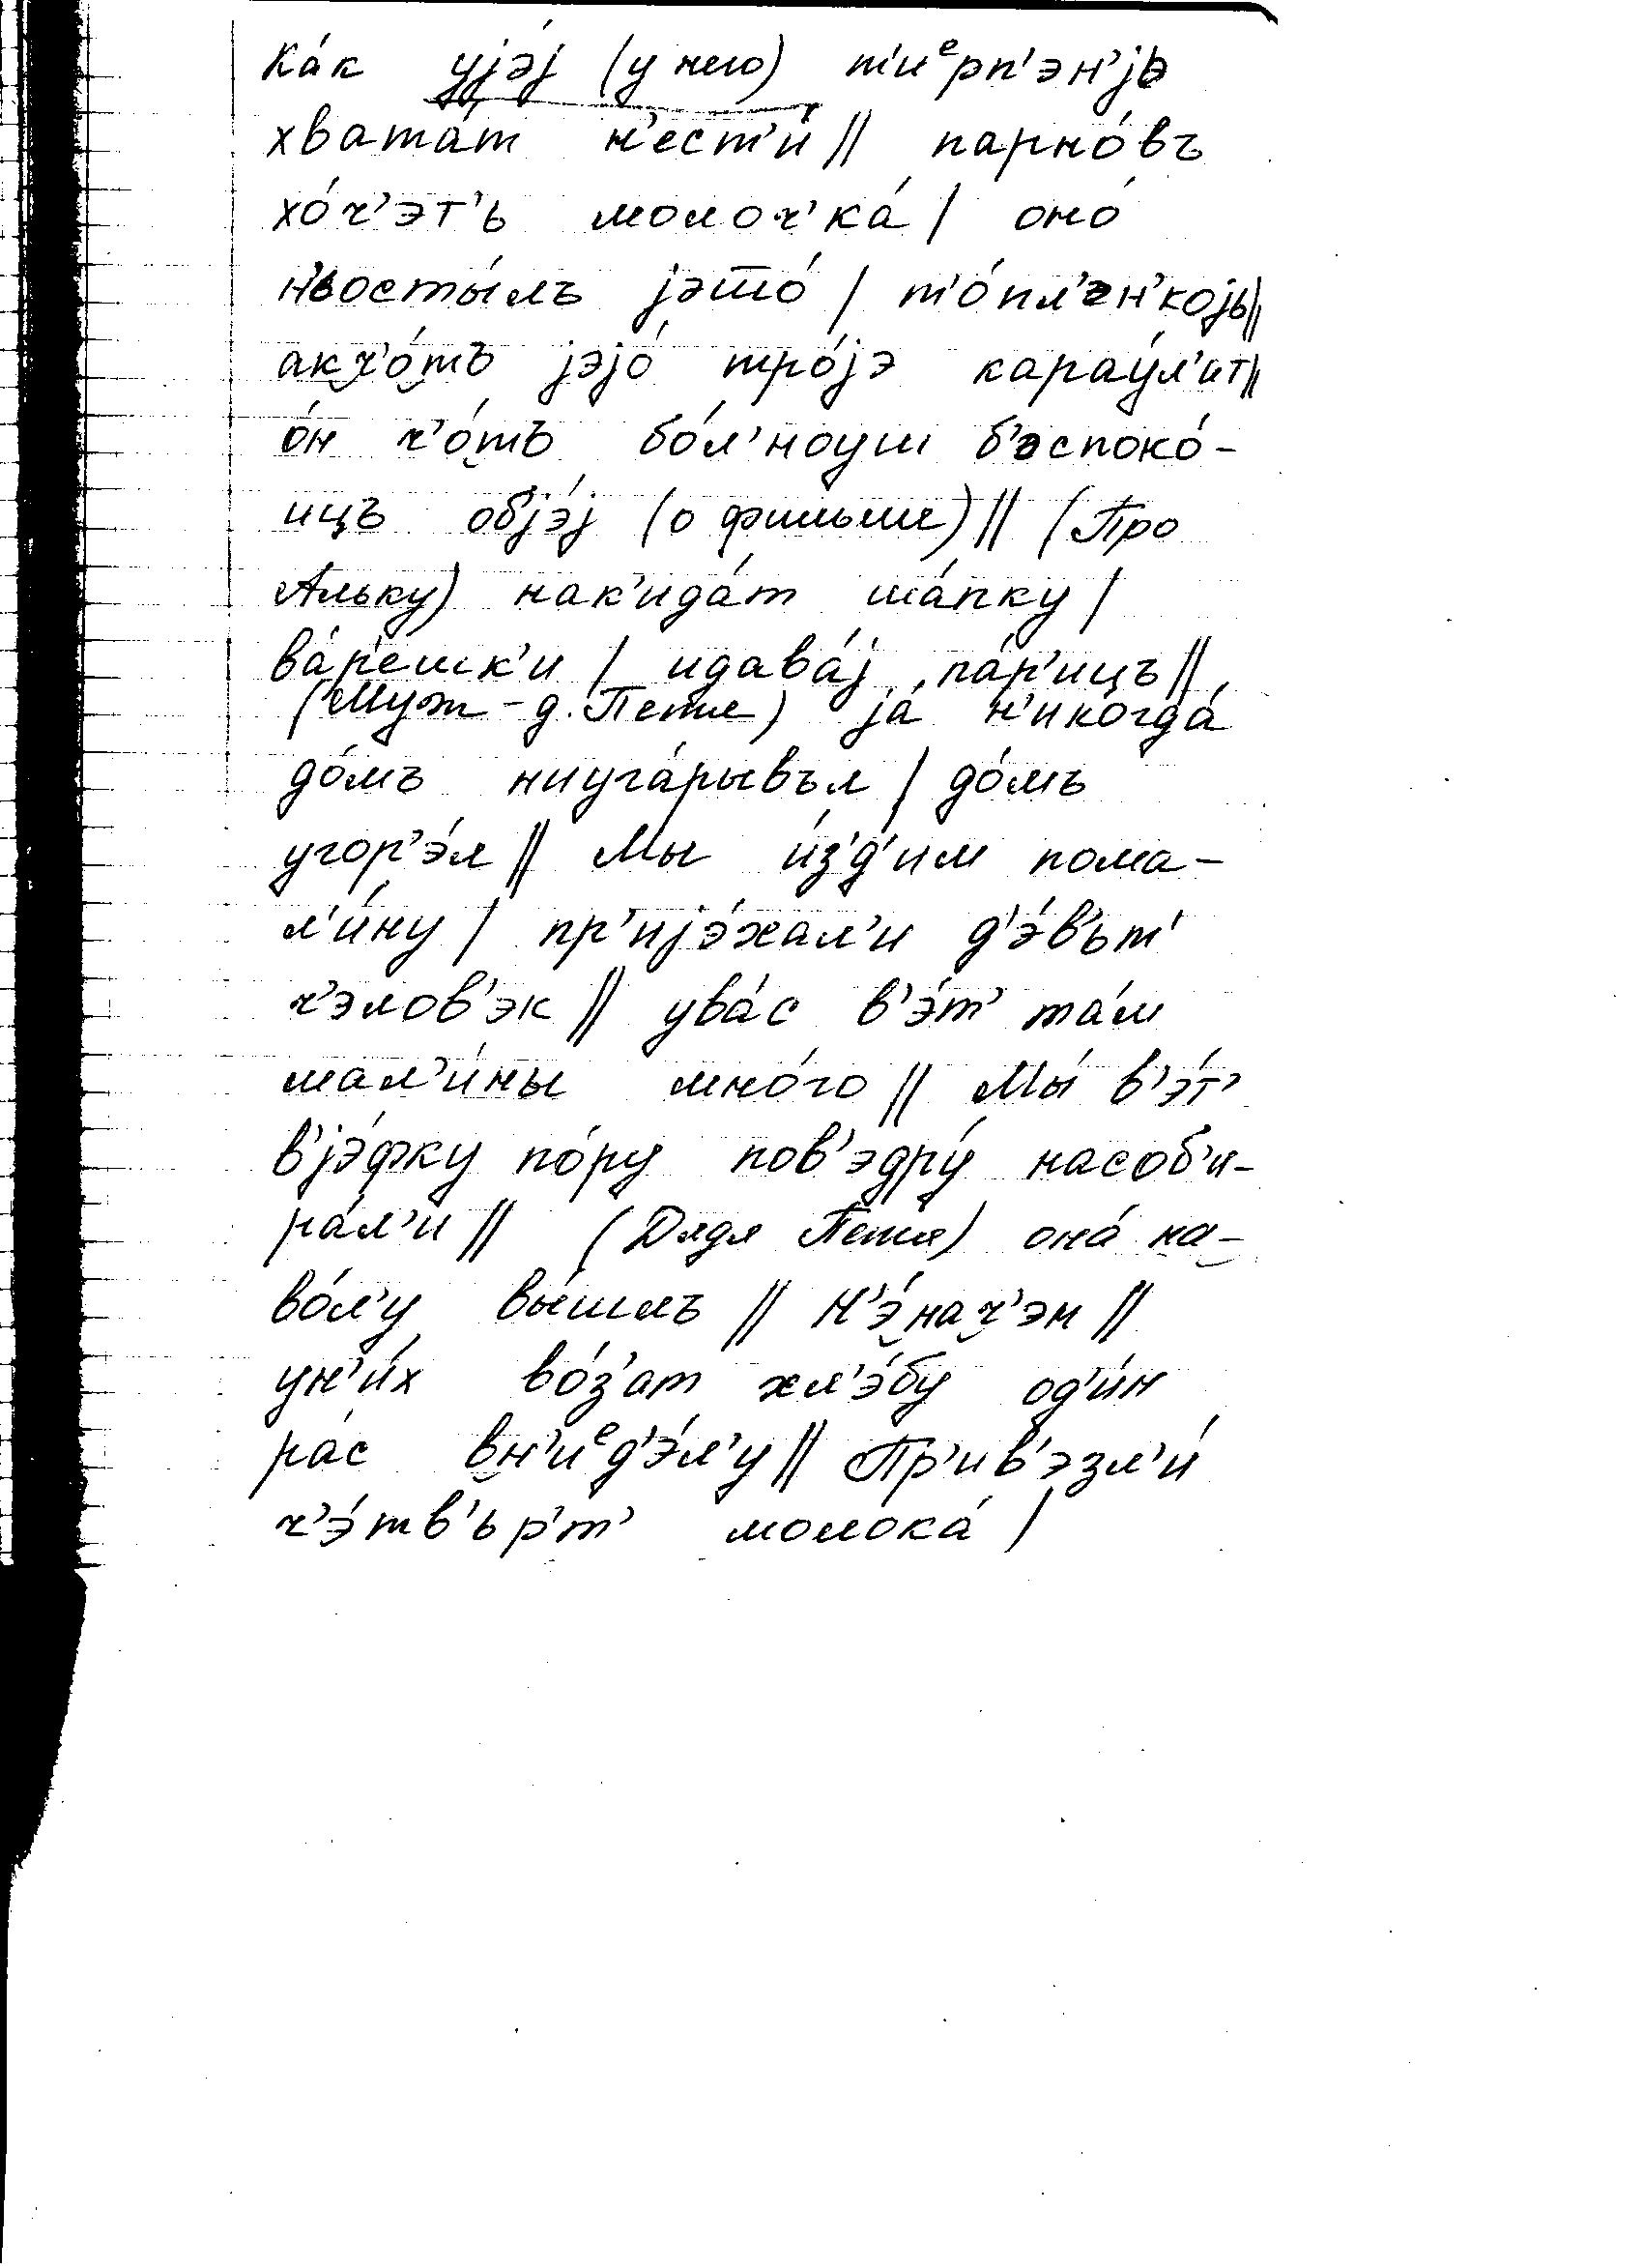 ка́к ујэ́ј (у него) т'иᵉрп'э́н'јь
хвата́т н'ест'и́ || парно́въ
хо́ч'эт'ь молоч'ка́ | оно́
н'ьосты́лъ јэто́ | т'о́пл'эн'којь ||
акч'о́тъ јэјо́ тро́јэ карау́л'ит ||
о́н ч'о́тъ бо́л'ноуш б'эспоко́-
ицъ објэ́ј (о фильме) || (Про
Альку) нак'ида́т ша́пку |
ва́р'ешк'и | идава́ј па́р'ицъ ||
(Муж - д. Петя) ја́ н'икогда́
до́мъ ниуга́рывъл | до́мъ
угор'э́л || Мы и́з'д'им пома-
л'и́ну | пр'ијэ́хал'и д'э́в'ьт'
ч'элов'эк || ува́с в'э́т' та́м
мал'и́ны мно́го || Мы́ в'э́т'
в'јэ́фку по́ру пов'эдру́ насоб'и-
ра́л'и || (Дядя Петя) она́ на-
во́л'у вы́шлъ || Н'э́нач'эм ||
ун'и́х во́з'ат хл'э́бу од'и́н
ра́с вн'иᵉд'э́л'у || Пр'ив'эзл'и́
ч'э́тв'ьр'т' молока́ |